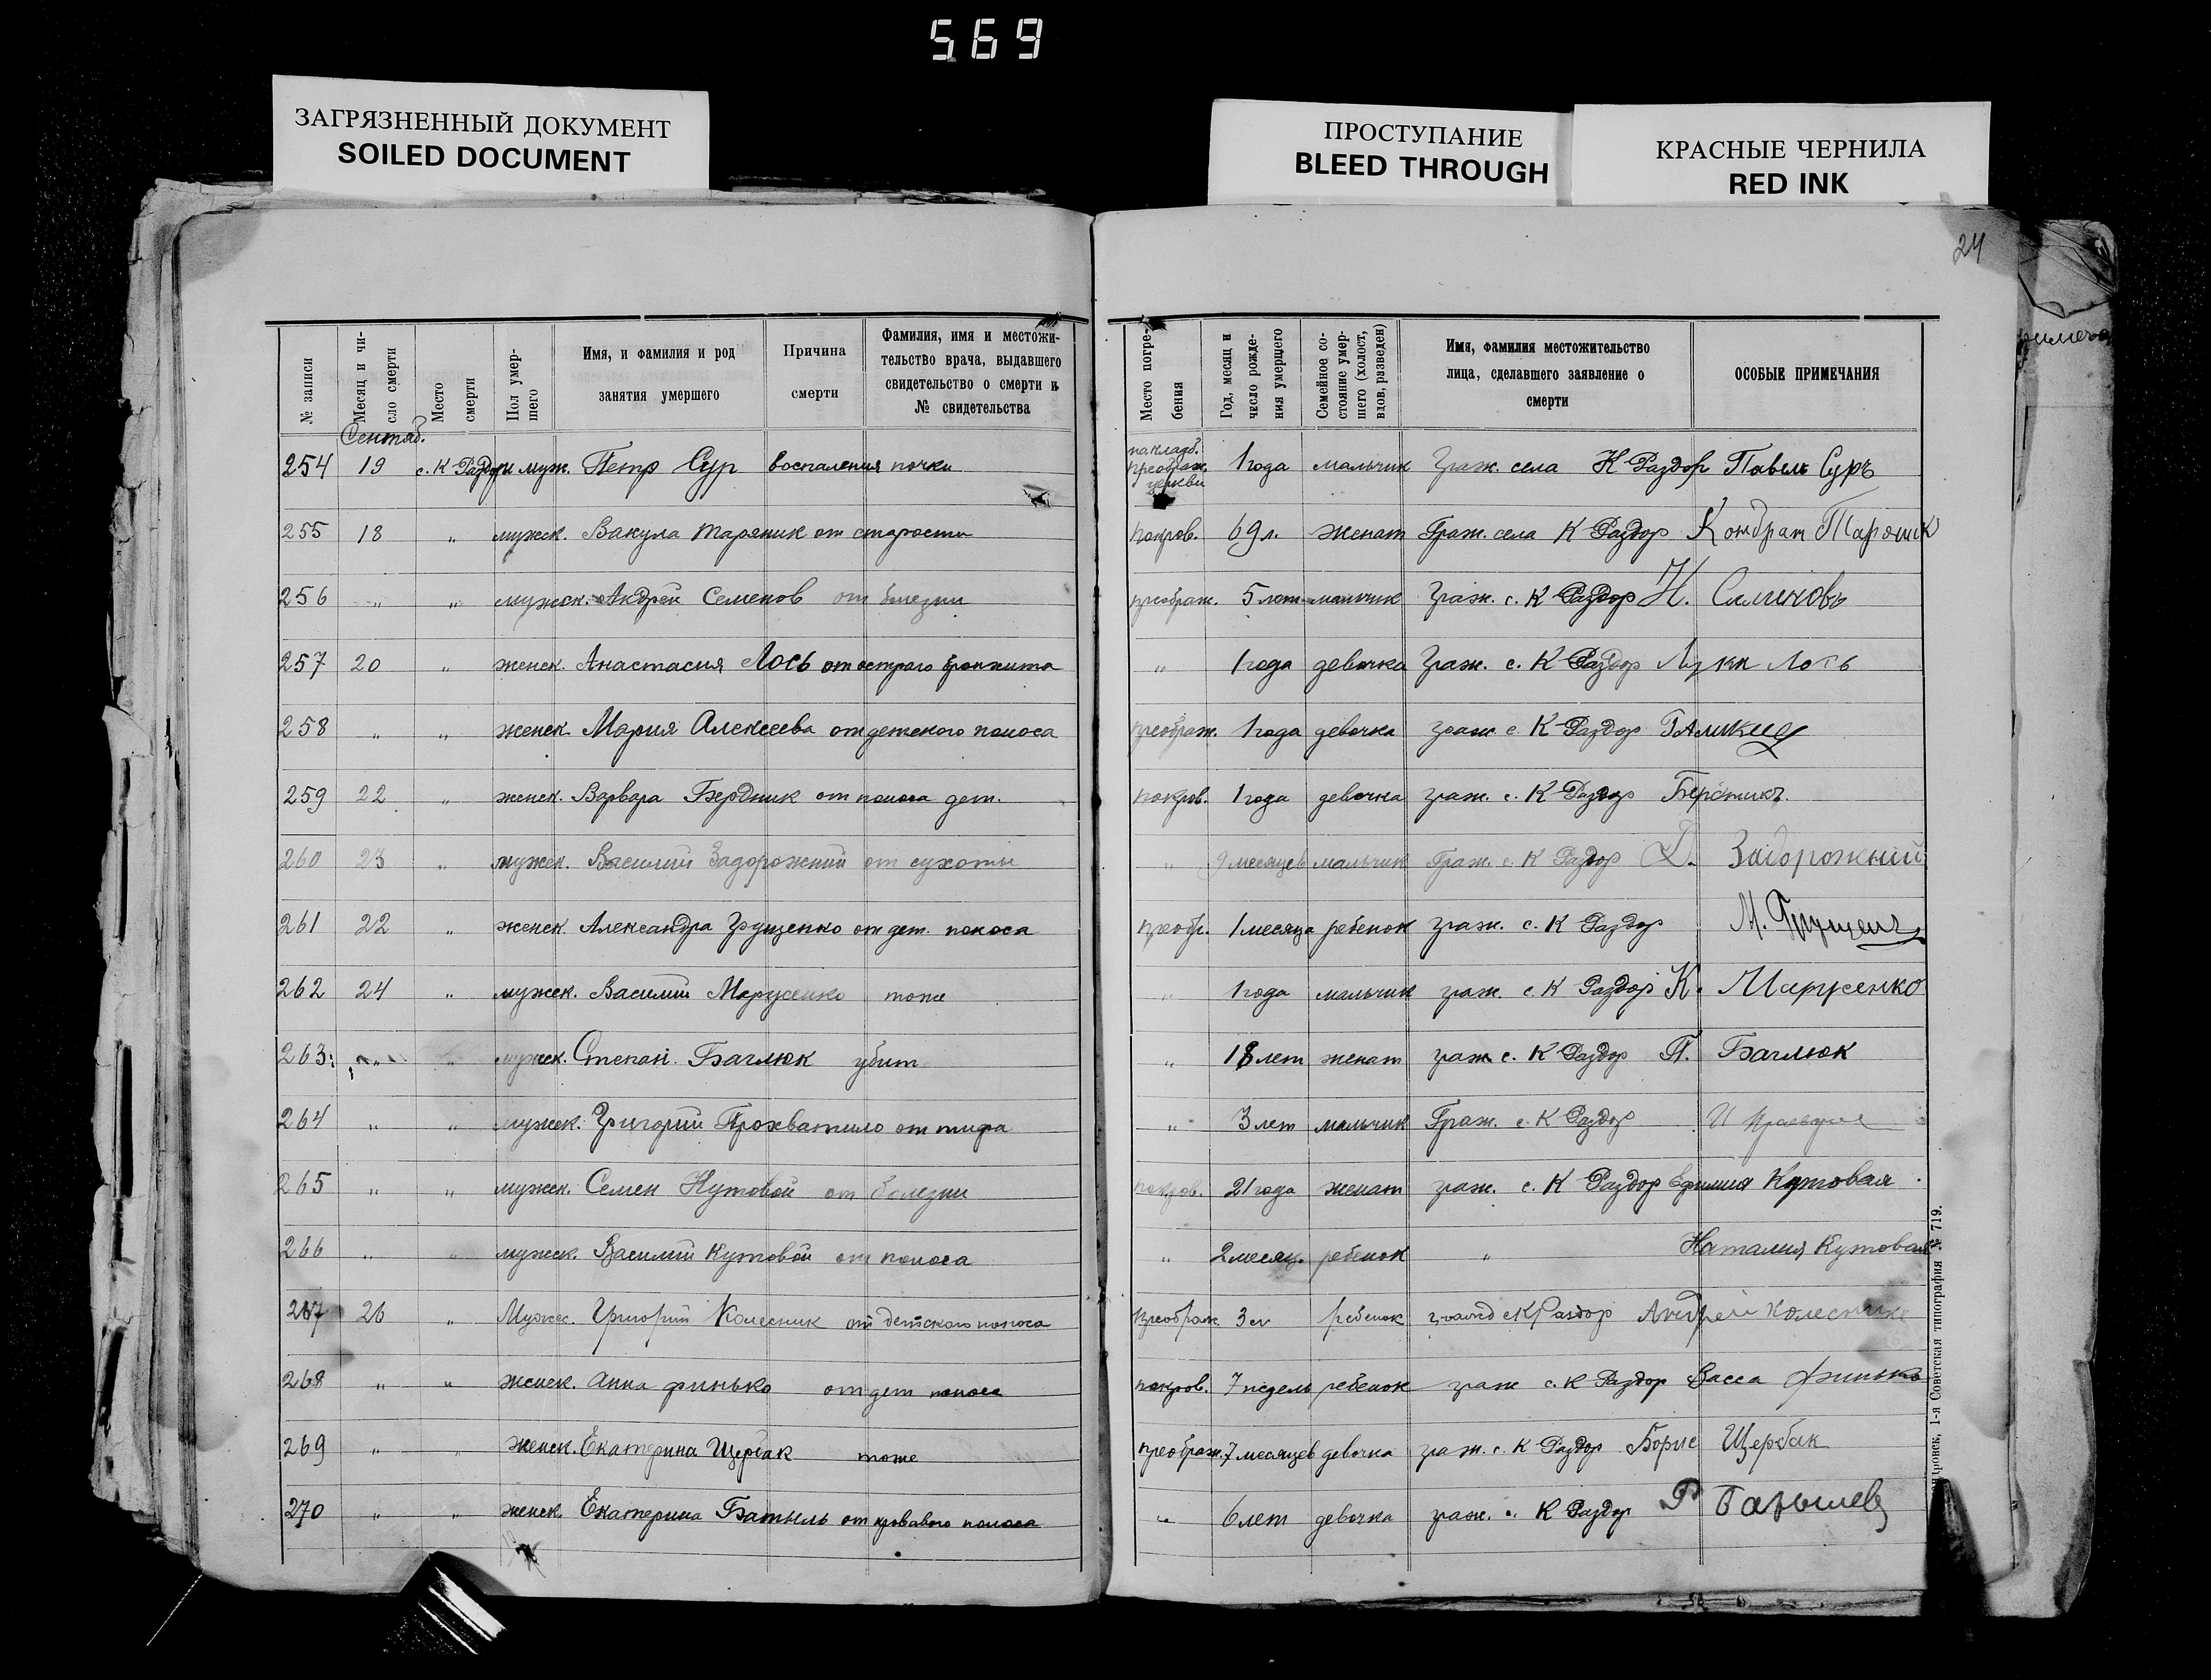 569
ЗАГРЯЗНЕННЫЙ ДОКУМЕНТ
SOILED DOCUMENT
ПРОСТУПАНИЕ
BLEED THROUGH
КРАСНЫЕ ЧЕРНИЛА
RED INK
24
№ записи
Месяц и чи-
сло смерти
Место
смерти
Пол умер-
шего
Имя, и фамилия и род
занятия умершего
Причина
смерти
Фамилия, имя и местожи-
тельство врача, выдавшего
свидетельство о смерти и
№ свидетельства
Место погре-
бения
Год, месяц и
число рожде-
ния умершего
Семейное со-
стояние умер-
шего (холост,
вдов, разведен)
Имя, фамилия местожительство
лица, сделавшего заявление о
смерти
ОСОБЫЕ ПРИМЕЧАНИЯ
Сентяб.
на кладб.
254 19 с. К Раздоры муж. Петр Сур воспаления почки преображ. 1 года мальчик Граж. села К Раздор Павель Суръ
церкви
255 18 " мужск. Вакула Тараник от старости покров. 69 л. женат Граж. села К Раздор Кондрат
256 " " мужск. Андрей Семенов от болезни преображ. 5 лет мальчик Граж. с. К Раздор Н. Семеновъ
257 20 " женск. Анастасия Лось от острого бронхита " 1 года девочка Граж. с. К Раздор Лука Лось
258 " " женск. Мария Алексеева от детского поноса преображ. 1 года девочка граж с К Раздор
259 22 " женск. Варвара Бердник от поноса дет. покров. 1 года девочка граж. с. К Раздор
260 23 " мужск. Василий Задорожний от сухоты " 9 месяцев мальчик Граж. с. К Раздор Д. Задорожний
261 22 " женск. Александра Грущенко от дет. поноса преобр. 1 месяца ребенок граж. с. К Раздор М.
262 24 " мужск. Василий Марусенко тоже " 1 года мальчик граж. с. К Раздор К. Марусенко
263 " " мужск. Степан Баглюк убит " 18 лет женат граж с. К Раздор П. Баглюк
264 " " мужск. Григорий Прохватило от тифа " 3 лет мальчик Граж. с. К Раздор
265 " " мужск. Семен Кутовой от болезни покров. 21 года женат граж. с. К Раздор Ефимия Кутовая
266 " " мужск. Василий Кутовой от поноса " 2 месяц. ребенок " Наталия Кутовая
267 26 " Мужск. Григорий Колесник от детского поноса преображ. 3 ребенок с К Раздор Андрей
268 " " женск. Анна Финько от дет поноса покров. 7 недель ребенок граж с. К Раздор Васса Финько
269 " " женск. Екатерина Щербак тоже преображ. 7 месяцев девочка граж. с. К Раздор Борис Щербак
270 " " женск. Екатерина Батыль от кровавого поноса " 6 лет девочка граж. с. К Раздор
1-я Советская типография № 719.